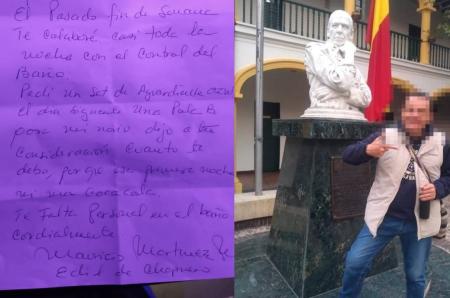 El Pasado fin de Semana
Te Colaboré Casi toda la
noche con el Control del
Baño.
Pedi un Set de Aguardiente
el dia siguente una
para mi novio dijo a tu
Consideración Cuanto te
debo, porque esa primera noche
ni una
Te Falta Personal en el baño
Cordialmente
Mauricio Martinez